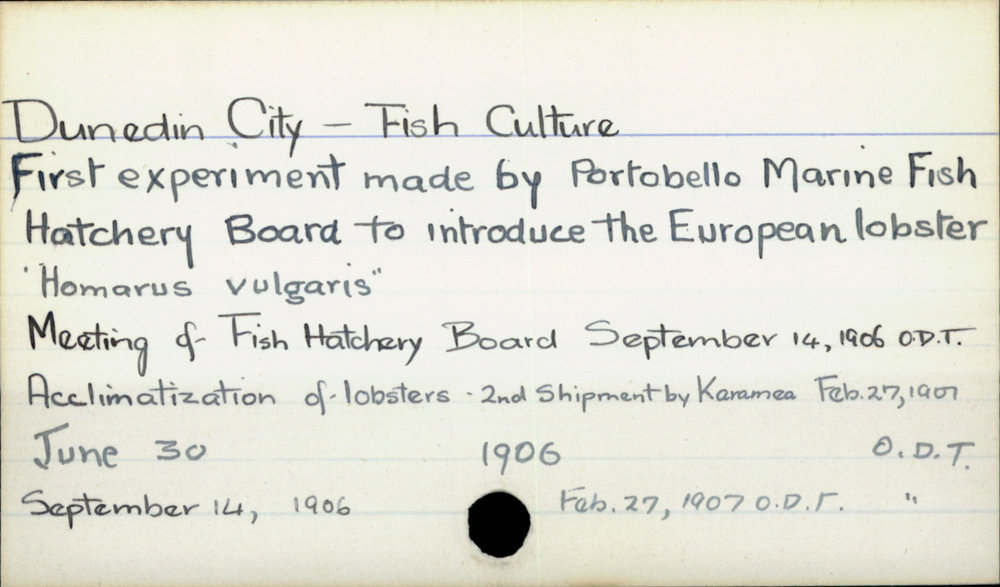 Dunedin City – Fish Culture
First experiment made by Portobello Marine Fish
Hatchery Board to introduce the European lobster
"Homarus vulgaris"
Meeting of Fish Hatchery Board September 14, 1906 O.D.T.
Acclimatization of lobsters - 2nd Shipment by Karamea Feb. 27, 1907
June 30 1906 O.D.T.
September 14, 1906 Feb. 27, 1907 O.D.T. "